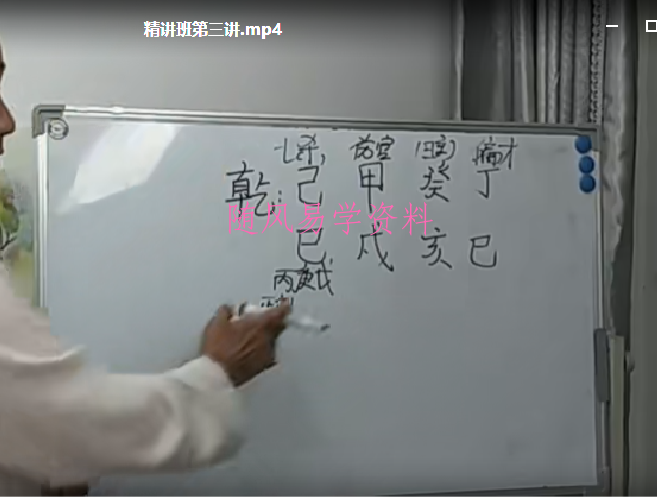 精讲班第三讲.mp4
七杀, 伤官 (日主) 偏才
乾: 己 甲 癸 丁
随风易学资料
巳 戌 亥 巳
丙庚戊